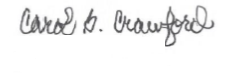 Carol G. Crawford